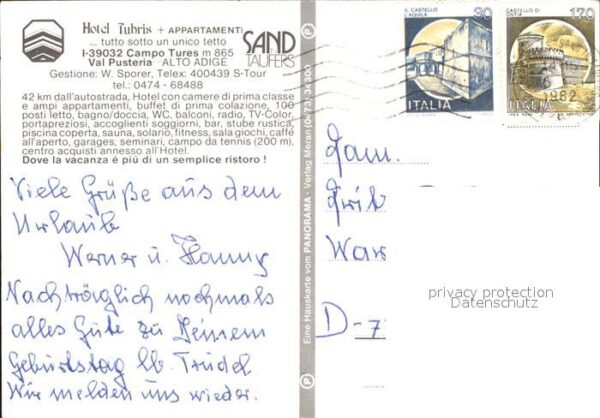 Hotel Tubris + APPARTAMENTI
... tutto sotto un unico tetto
I-39032 Campo Tures m 865
Val Pusteria ALTO ADIGE
SAND
TAUFERS
Gestione: W. Sporer, Telex: 400439 S-Tour
tel.: 0474 - 68488
42 km dall'autostrada, Hotel con camere di prima classe
e ampi appartamenti, buffet di prima colazione, 100
posti letto, bagno/doccia, WC, balconi, radio, TV-Color,
portapreziosi, accoglienti soggiorni, bar, stube rustica,
piscina coperta, sauna, solario, fitness, sala giochi, caffé
all'aperto, garages, seminari, campo da tennis (200 m).
centro acquisti annesso all'Hotel.
Dove la vacanza é piú di un semplice ristoro !
Viele Grüße aus dem
Urlaub
Werner u. Hanny
Nachträglich nochmals
alles Gute zu Deinem
Geburtstag lb. Trudel
Wir melden uns wieder.
Eine Hauskarte vom PANORAMA - Verlag Meran (0473) 34300
IL CASTELLO
L'AQUILA
30
ITALIA
CASTELLO DI
OSTIA
170
ITALIA
1982
Fam.
War
D-7
privacy protection
Datenschutz